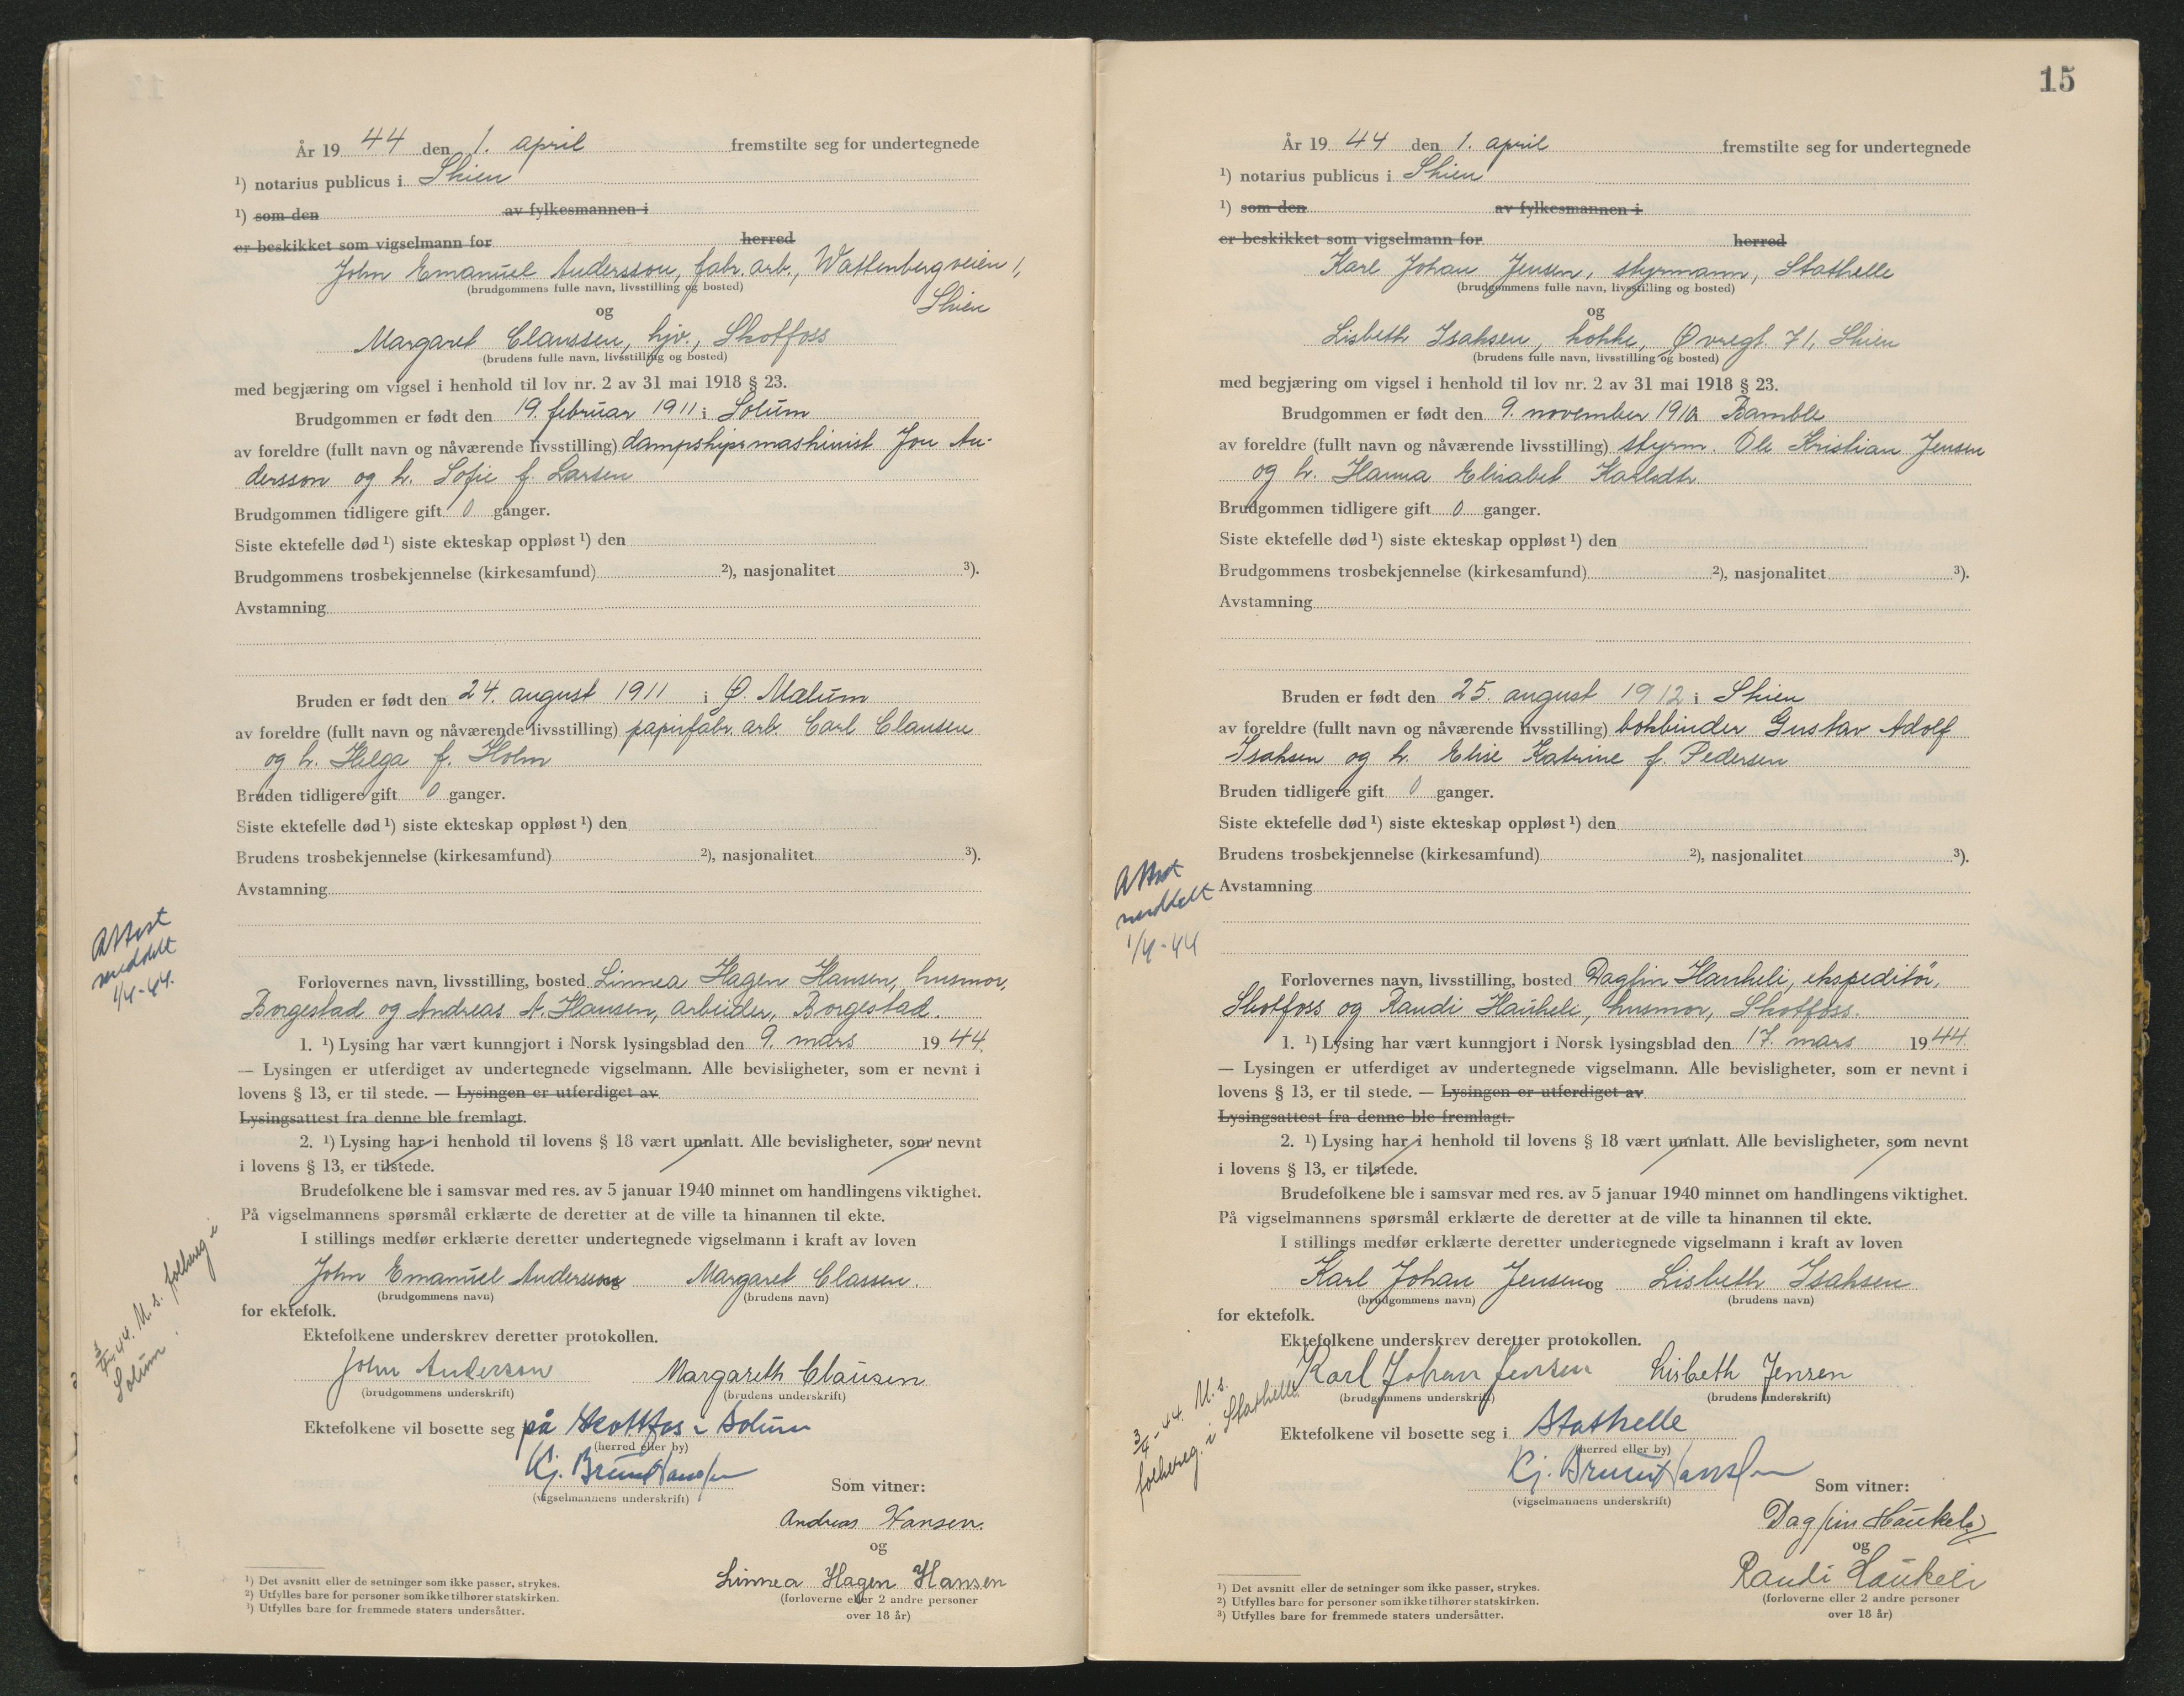 År 19 44 den 1. april fremstilte seg for undertegnede
¹) notarius publicus i Skien
¹) som den av fylkesmannen i
er beskikket som vigselmann for herred
John Emanuel Andersson, fabr. arb., Wattenbergveien 1,
(brudgommens fulle navn, livsstilling og bosted)
Skien
og
Margaret Claussen, hjv., Skotfoss
(brudens fulle navn, livsstilling og bosted)
med begjæring om vigsel i henhold til lov nr. 2 av 31 mai 1918 § 23.
Brudgommen er født den 19. februar 1911 i Solum
av foreldre (fullt navn og nåværende livsstilling) dampskipsmaskinist Jon An-
dersson og h. Sofie f. Larsen
Brudgommen tidligere gift 0 ganger.
Siste ektefelle død ¹) siste ekteskap oppløst ¹) den
Brudgommens trosbekjennelse (kirkesamfund) ²), nasjonalitet ³).
Avstamning
Bruden er født den 24. august 1911 i Ø. Mælum
av foreldre (fullt navn og nåværende livsstilling) papirfabr. arb. Carl Clausen
og h. Helga f. Holm
Bruden tidligere gift 0 ganger.
Siste ektefelle død ¹) siste ekteskap oppløst ¹) den
Brudens trosbekjennelse (kirkesamfund) ²), nasjonalitet ³).
Avstamning
Attest
meddelt
1/4-44.
Forlovernes navn, livsstilling, bosted Linnea Hagen Hansen, husmor,
Borgestad og Andreas A. Hansen, arbeider, Borgestad.
1. ¹) Lysing har vært kunngjort i Norsk lysingsblad den 9. mars 19 44.
— Lysingen er utferdiget av undertegnede vigselmann. Alle bevisligheter, som er nevnt i
lovens § 13, er til stede. — Lysingen er utferdiget av
Lysingsattest fra denne ble fremlagt.
2. ¹) Lysing har i henhold til lovens § 18 vært unnlatt. Alle bevisligheter, som nevnt
i lovens § 13, er tilstede.
Brudefolkene ble i samsvar med res. av 5 januar 1940 minnet om handlingens viktighet.
På vigselmannens spørsmål erklærte de deretter at de ville ta hinannen til ekte.
I stillings medfør erklærte deretter undertegnede vigselmann i kraft av loven
John Emanuel Andersson og Margaret Classen.
(brudgommens navn) (brudens navn)
for ektefolk.
3/4-44. M. s. folkereg i
Solum.
Ektefolkene underskrev deretter protokollen.
John Anderson Margareth Clausen
(brudgommens underskrift) (brudens underskrift)
Ektefolkene vil bosette seg på Skottfos i Solum
(herred eller by)
Kj. Bruun Hanssen
(vigselmannens underskrift)
Som vitner:
Andreas Hansen.
og
Linnea Hagen Hansen
(forloverne eller 2 andre personer
over 18 år)
¹) Det avsnitt eller de setninger som ikke passer, strykes.
²) Utfylles bare for personer som ikke tilhører statskirken.
³) Utfylles bare for fremmede staters undersåtter.
15
År 19 44 den 1. april fremstilte seg for undertegnede
¹) notarius publicus i Skien
¹) som den av fylkesmannen i
er beskikket som vigselmann for herred
Karl Johan Jensen, styrmann, Stathelle
(brudgommens fulle navn, livsstilling og bosted)
og
Lisbeth Isaksen, kokke, Øvregt. 71, Skien
(brudens fulle navn, livsstilling og bosted)
med begjæring om vigsel i henhold til lov nr. 2 av 31 mai 1918 § 23.
Brudgommen er født den 9. november 1910 Bamble
av foreldre (fullt navn og nåværende livsstilling) styrm. Ole Kristian Jensen
og h. Hanna Elisabet Karlsdtr.
Brudgommen tidligere gift 0 ganger.
Siste ektefelle død ¹) siste ekteskap oppløst ¹) den
Brudgommens trosbekjennelse (kirkesamfund) ²), nasjonalitet ³).
Avstamning
Bruden er født den 25. august 1912 i Skien
av foreldre (fullt navn og nåværende livsstilling) bokbinder Gustav Adolf
Isaksen og h. Elise Katrine f. Pedersen
Bruden tidligere gift 0 ganger.
Siste ektefelle død ¹) siste ekteskap oppløst ¹) den
Brudens trosbekjennelse (kirkesamfund) ²), nasjonalitet ³).
Attest
meddelt
1/4-44
Avstamning
Forlovernes navn, livsstilling, bosted Dagfin Haukeli, ekspeditör,
Skotfoss og Randi Haukeli, husmor, Skotfoss.
1. ¹) Lysing har vært kunngjort i Norsk lysingsblad den 17. mars 19 44.
— Lysingen er utferdiget av undertegnede vigselmann. Alle bevisligheter, som er nevnt i
lovens § 13, er til stede. — Lysingen er utferdiget av
Lysingsattest fra denne ble fremlagt.
2. ¹) Lysing har i henhold til lovens § 18 vært unnlatt. Alle bevisligheter, som nevnt
i lovens § 13, er tilstede.
Brudefolkene ble i samsvar med res. av 5 januar 1940 minnet om handlingens viktighet.
På vigselmannens spørsmål erklærte de deretter at de ville ta hinannen til ekte.
I stillings medfør erklærte deretter undertegnede vigselmann i kraft av loven
Karl Johan Jensen og Lisbeth Isaksen
(brudgommens navn) (brudens navn)
for ektefolk.
Ektefolkene underskrev deretter protokollen.
Karl Johan Jensen Lisbeth Jensen
(brudgommens underskrift) (brudens underskrift)
3/4-44. M. s.
folkereg. i Stathelle
Ektefolkene vil bosette seg i Stathelle
(herred eller by)
Kj. Bruun Hanssen
(vigselmannens underskrift)
Som vitner:
Dagfin Haukeli
og
Randi Haukeli
(forloverne eller 2 andre personer
over 18 år)
¹) Det avsnitt eller de setninger som ikke passer, strykes.
²) Utfylles bare for personer som ikke tilhører statskirken.
³) Utfylles bare for fremmede staters undersåtter.